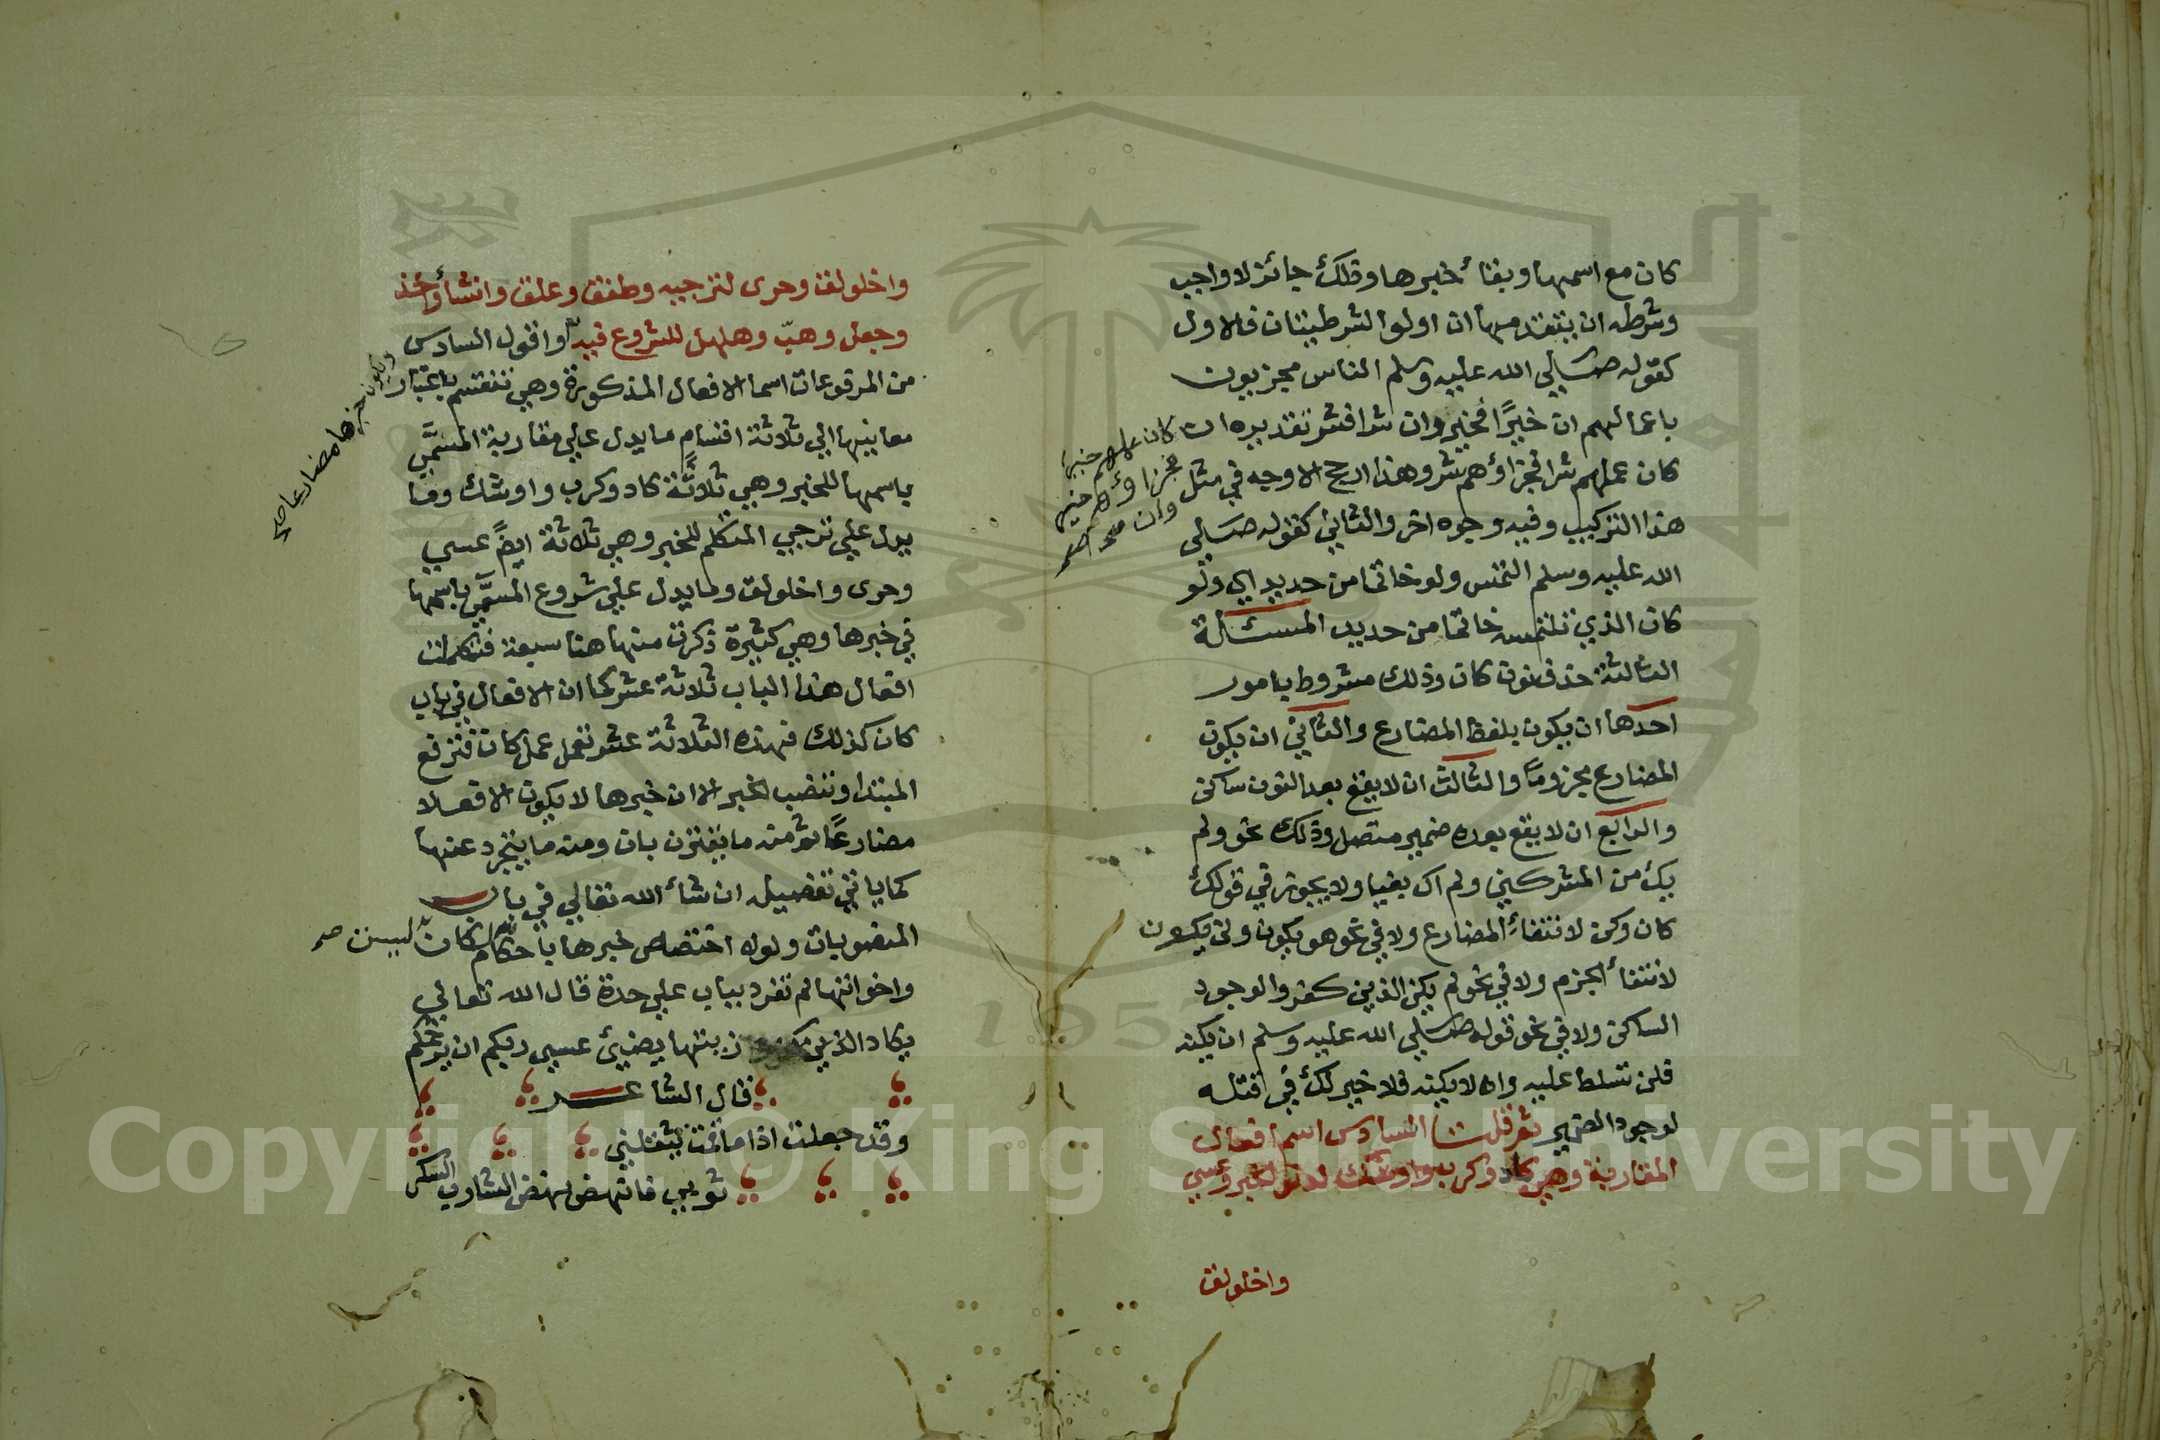 كان مع اسمها وبقاء خبرها وذلك جائز لا واجب
وشرطه ان يتقدمها ان او لو الشرطيتان فالاول
كقوله صلي الله عليه وسلم الناس مجزيون
باعمالهم ان خيرًا فخير وان شرا فشر تقديره ان
كان عملهم خير
فجزاؤهم خير
وان صح اصم
كان عملهم شرا فجزاؤهم شر وهذا ارجح الاوجه في مثل
هذا التركيب وفيه وجوه اخر والثاني كقوله صلي
الله عليه وسلم التمس ولو خاتما من حديد اي ولو
كان الذي تلتمسه خاتما من حديد المسئلة
الثالثة حذف نون كان وذلك مشروط بامور
احدها ان يكون بلفظ المضارع والثاني ان يكون
المضارع مجزومًا والثالث ان لا يقع بعد النون ساكن
والرابع ان لا يقع بعده ضمير متصل وذلك نحو ولم
يك من المشركين ولم اك بغيا ولا يجوز في قولك
كان وكن لانتفاء المضارع ولا في نحو هو يكون ولن يكون
لانتفاء الجزم ولا في نحو لم يكن الذين كفروا لوجود
الساكن ولا في نحو قوله صلي الله عليه وسلم ان يكنه
فلن تسلط عليه وان لا يكنه فلا خير لك في قتله
لوجود الضمير ثم قلت السادس اسم افعال
المقاربة وهي كاد وكرب واوشك لدنو الخبر وعسي
واخلولق
واخلولق وحرى لترجيه وطفق وعلق وانشأ وأخذ
وجعل وهبّ وهلهل للشروع فيه واقول السادس
من المرفوعات اسما الافعال المذكورة وهي تنقسم باعتبار
ويكون خبرها مضارعا صح
معانيها الي ثلاثة اقسام ما يدل علي مقاربة المسمَّي
باسمها للخبر وهي ثلاثة كاد وكرب واوشك وما
يدل علي ترجي المتكلم للخبر وهي ثلاثة ايضً عسي
وحرى واخلولق وما يدل علي شروع المسمَّي باسمها
في خبرها وهي كثيرة ذكرت منها هنا سبعة فتكملت
افعال هذا الباب ثلاثة عشر كما ان الافعال في باب
كان كذلك فهذه الثلاثة عشر تعمل عمل كان فترفع
المبتدا وتنصب الخبر الا ان خبرها لا يكون الا فعلا
مضارعًا ثم منه ما يقترن بان ومنه ما يتجرد عنها
كما ياتي تفصيله ان شاء الله تعالي في باب
المنصوبات ولولا اختصاص خبرها باحكام ليست لكان صح
واخواتها لم تفرد بباب علي حدة قال الله تعالي
يكاد زيتها يضيئ عسي ربكم ان يرحمكم
قال الشاعر
وقد جعلت اذا ما قمت يثقلني
ثوبي فانهض نهض الشارب السكر
Copyright © King Saud University
1957